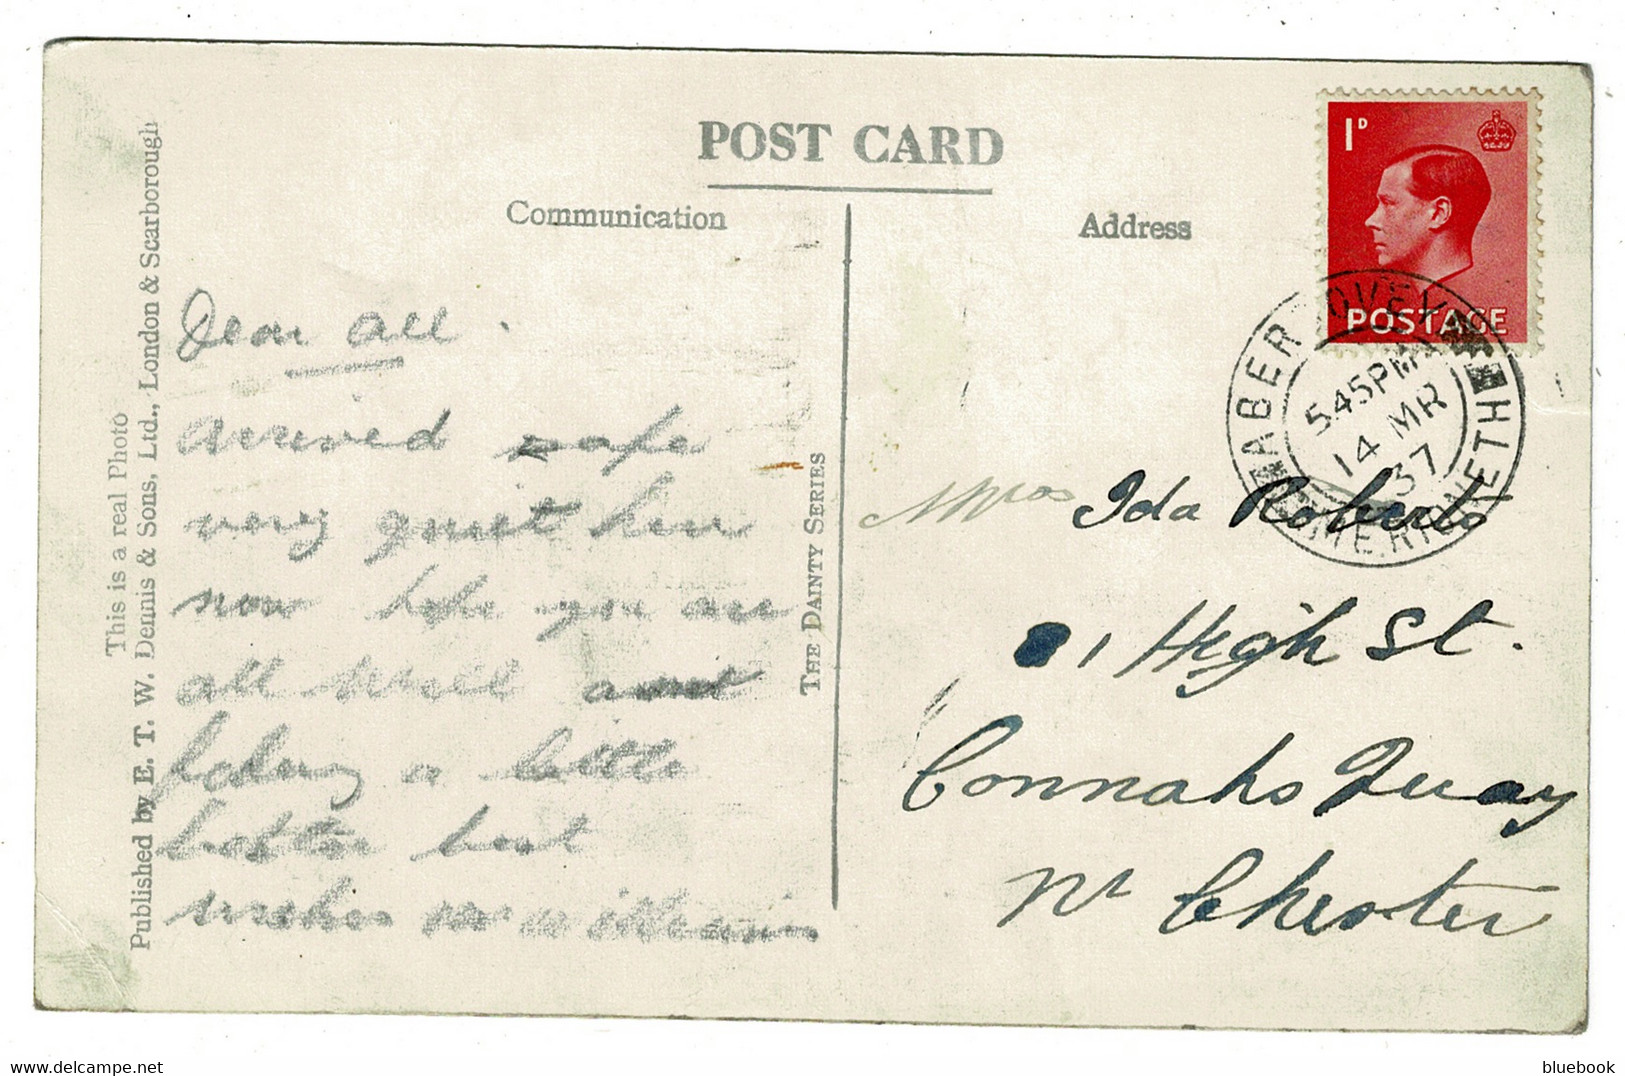 POST CARD
Communication
Address
1D
POSTAGE
5.45PM
14 MR
37
MERIONETH
This is a real Photo
Published by E. T. W. Dennis & Sons, Ltd., London & Scarborough
THE DAINTY SERIES
Dear All.
Arrived safe
very quiet here
now hope you are
all well and
feeling a little
better best
wishes
Mrs Ida Roberts
1 High St.
Connahs Quay
Nr Chester
bluebook